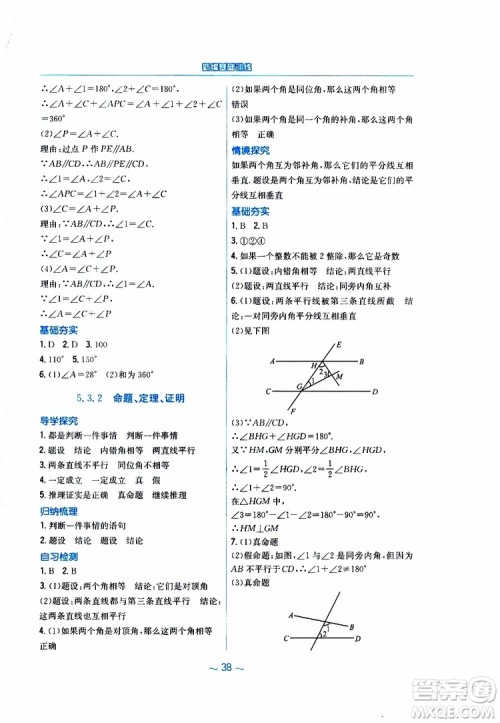 新编基础训练
∴∠A+∠1=180°,∠2+∠C=180°
∴∠A+∠1+∠2+∠C=180°+180°
∴∠A+∠C+∠APC=∠A+∠1+∠2+∠C
=360°
(2)∠P=∠A+∠C
理由:过点 P 作 PE//AB.
∵AB//CD,∴AB//PE//CD
∴∠A=∠1,∠C=∠2
∴∠APC=∠1+∠2=∠A+∠C
(3)∠C=∠A+∠P
理由:∵AB//CD,∴∠1=∠C
∵∠1=∠A+∠P
∴∠C=∠A+∠P
(4)∠A=∠C+∠P
理由:∵AB//CD,∴∠1=∠A
∵∠1=∠C+∠P
∴∠A=∠C+∠P
基础夯实
1. D 2. D 3. 100
4. 110° 5. 150°
6. (1)∠A=28° (2)和为360°
5.3.2 命题、定理、证明
导学探究
1. 都是判断一件事情 判断一件事情
2. 题设 结论 内错角相等 两直线平行
3. 两条直线不平行 同位角相等
4. 一定成立 一定成立 真 假
5. 推理证实是正确的 真命题 继续推理
归纳梳理
1. 判断一件事情的语句
2. 题设 结论 题设 结论
自习检测
1. B 2. B
3. (1)题设:两个角相等 结论:它们是对顶角
(2)题设:两条直线都与第三条直线平行 结论:这两条直线平行
4. (1)如果两个角是对顶角,那么这两个角相等
正确
(2)如果两个角是同位角,那么这两个角相等
错误
(3)如果两个角是同一个角的补角,那么这两个角相等 正确
情境探究
如果两个角互为邻补角,那么它们的平分线互相垂直. 题设是两个角互为邻补角,结论是它们的平分线互相垂直
基础夯实
1. B 2. B
3. ①②④
4. 如果一个整数不能被 2 整除,那么它是奇数
5. (1)题设:内错角相等 结论:两直线平行
(2)题设:两条平行线被第三条直线所截 结论:一对同旁内角互补
6. (1)题设:两条平行线被第三条直线所截
结论:一对同旁内角平分线互相垂直
(2)见下图
E
A H B
2
3 M
G 1
C D
F
(3)∵AB//CD
∴∠BHG+∠HGD=180°
又∵HM,GM 分别平分∠BHG,∠HGD
∴∠1=1/2∠HGD,∠2=1/2∠BHG
∴∠1+∠2=90°.
在△HGM 中
∠3=180°-∠1-∠2=180°-90°=90°
∴HM⊥GM
7. (1)真命题
(2)假命题:如图,∠1和∠2是同旁内角,但AB 不平行于 CD
(3)真命题
A
1 B
2
C D
~ 38 ~